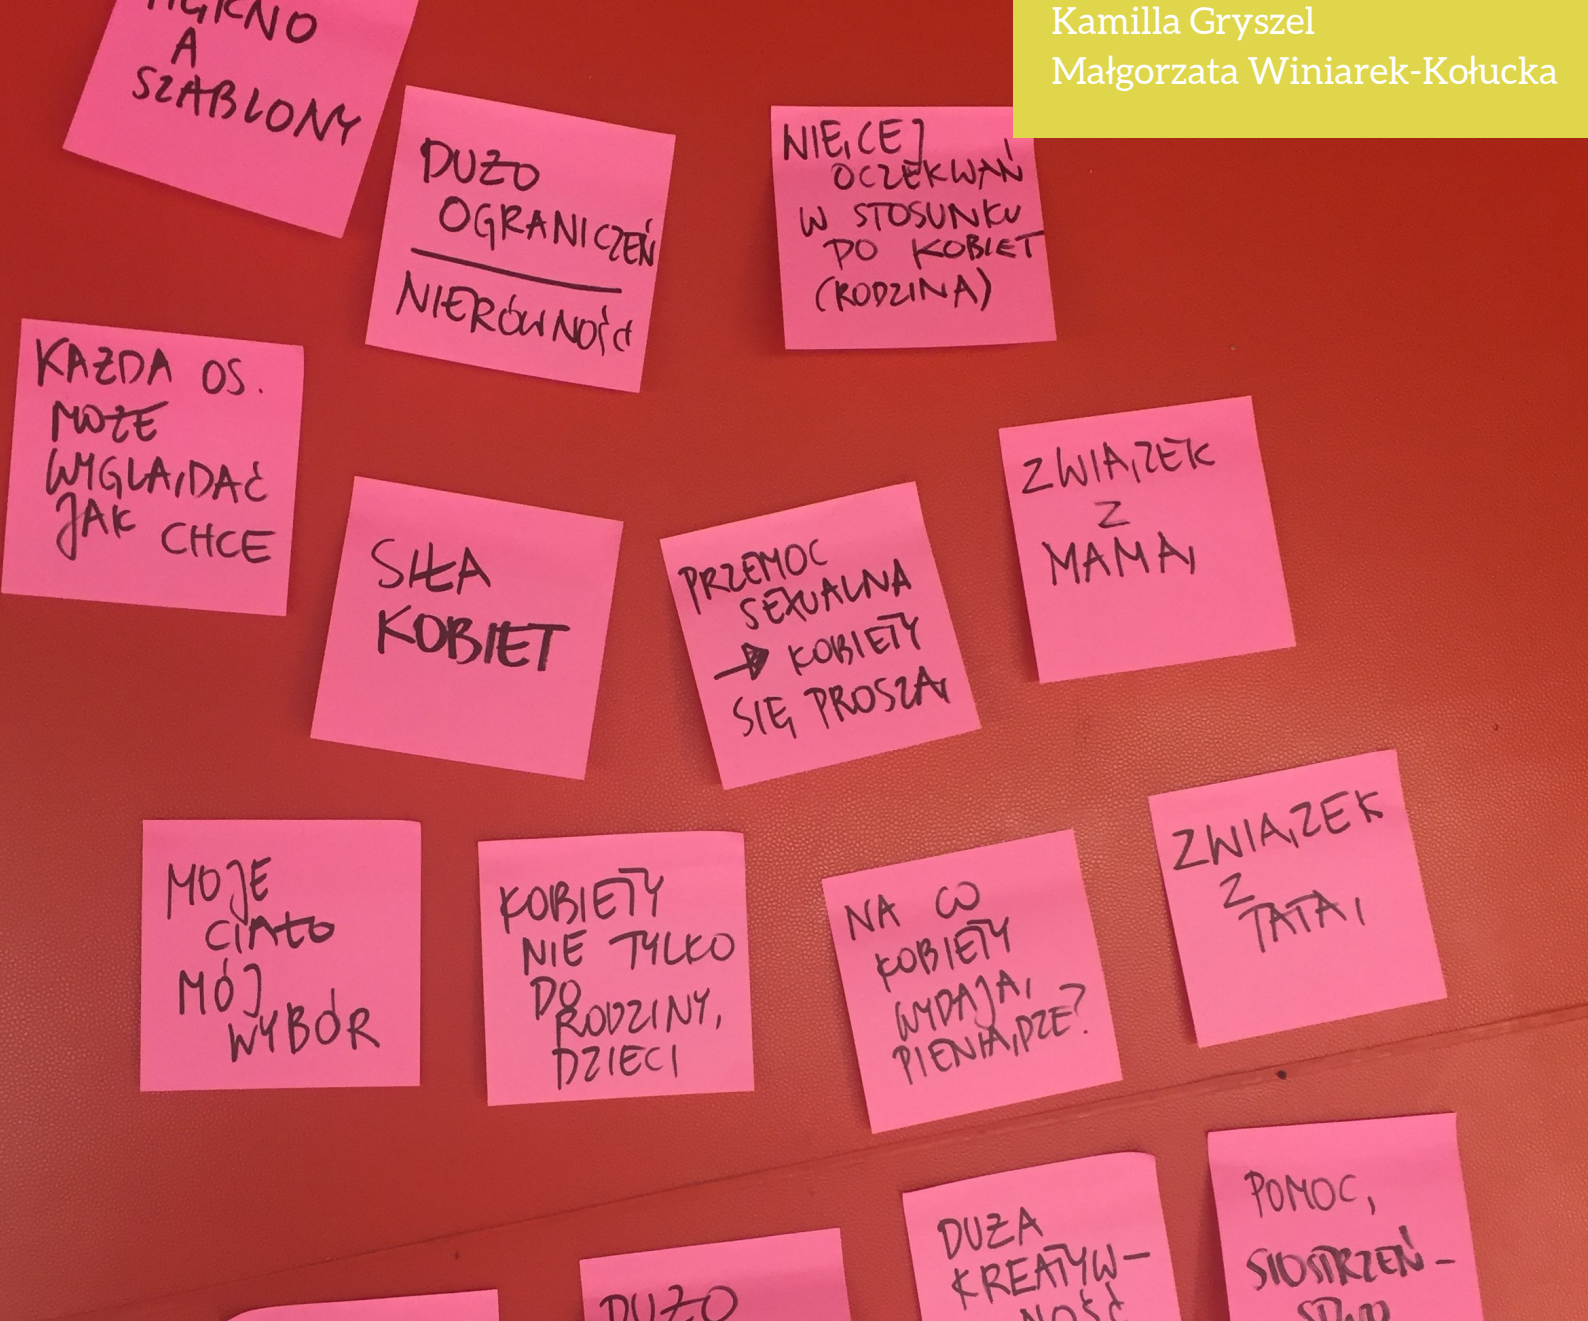 Kamilla Gryszel
Małgorzata Winiarek-Kołucka
A
SZABLONY
DUŻO
OGRANICZEŃ
NIERÓWNOŚĆ
OCZEKWAŃ
W STOSUNKU
DO KOBIET
(RODZINA)
KAŻDA OS.
MOŻE
WYGLĄDAĆ
JAK CHCE
SIŁA
KOBIET
PRZEMOC
SEXUALNA
→ KOBIETY
SIĘ PROSZĄ
ZWIĄZEK
Z
MAMĄ
MOJE
CIAŁO
MÓJ
WYBÓR
KOBIETY
NIE TYLKO
DO
RODZINY,
DZIECI
NA CO
KOBIETY
WYDAJĄ
PIENIĄDZE?
ZWIĄZEK
Z
TATĄ
DUŻO
DUŻA
KREATYW-
NOŚĆ
POMOC,
SIOSTRZEŃ-
STWO